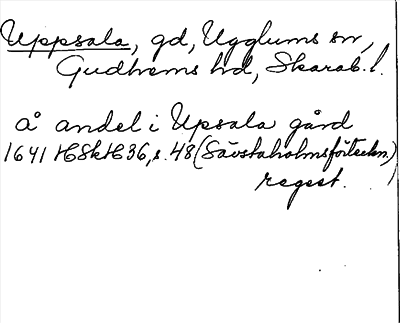 Uppsala, gd, Ugglums sn,
Gudhems hd, Skarab. l.
å andel i Upsala gård
1641 HSkH 36, s. 48 (Sävstaholmsförteckn.)
regest.